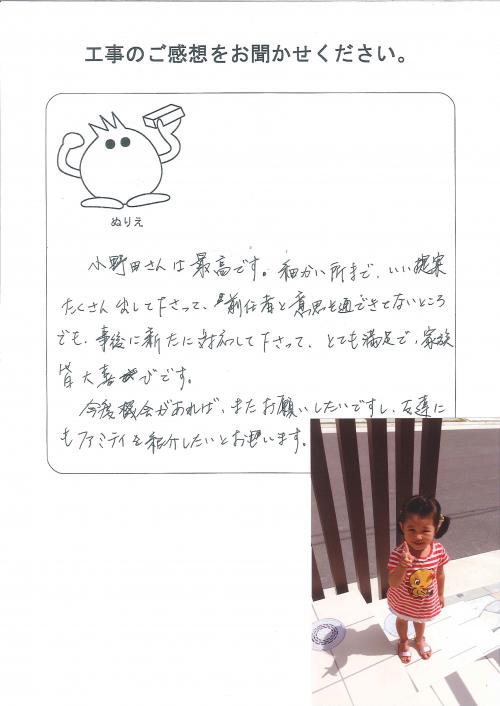 工事のご感想をお聞かせください。
ぬりえ
小野田さんは最高です。細かい所まで、いい提案
たくさん出して下さって、前任者と意思を通できてないところ
でも、事後に新たに対応して下さって、とても満足で、家族
皆大喜びです。
今後機会があれば、またお願いしたいですし、友達に
もファミテイを紹介したいとお思います。